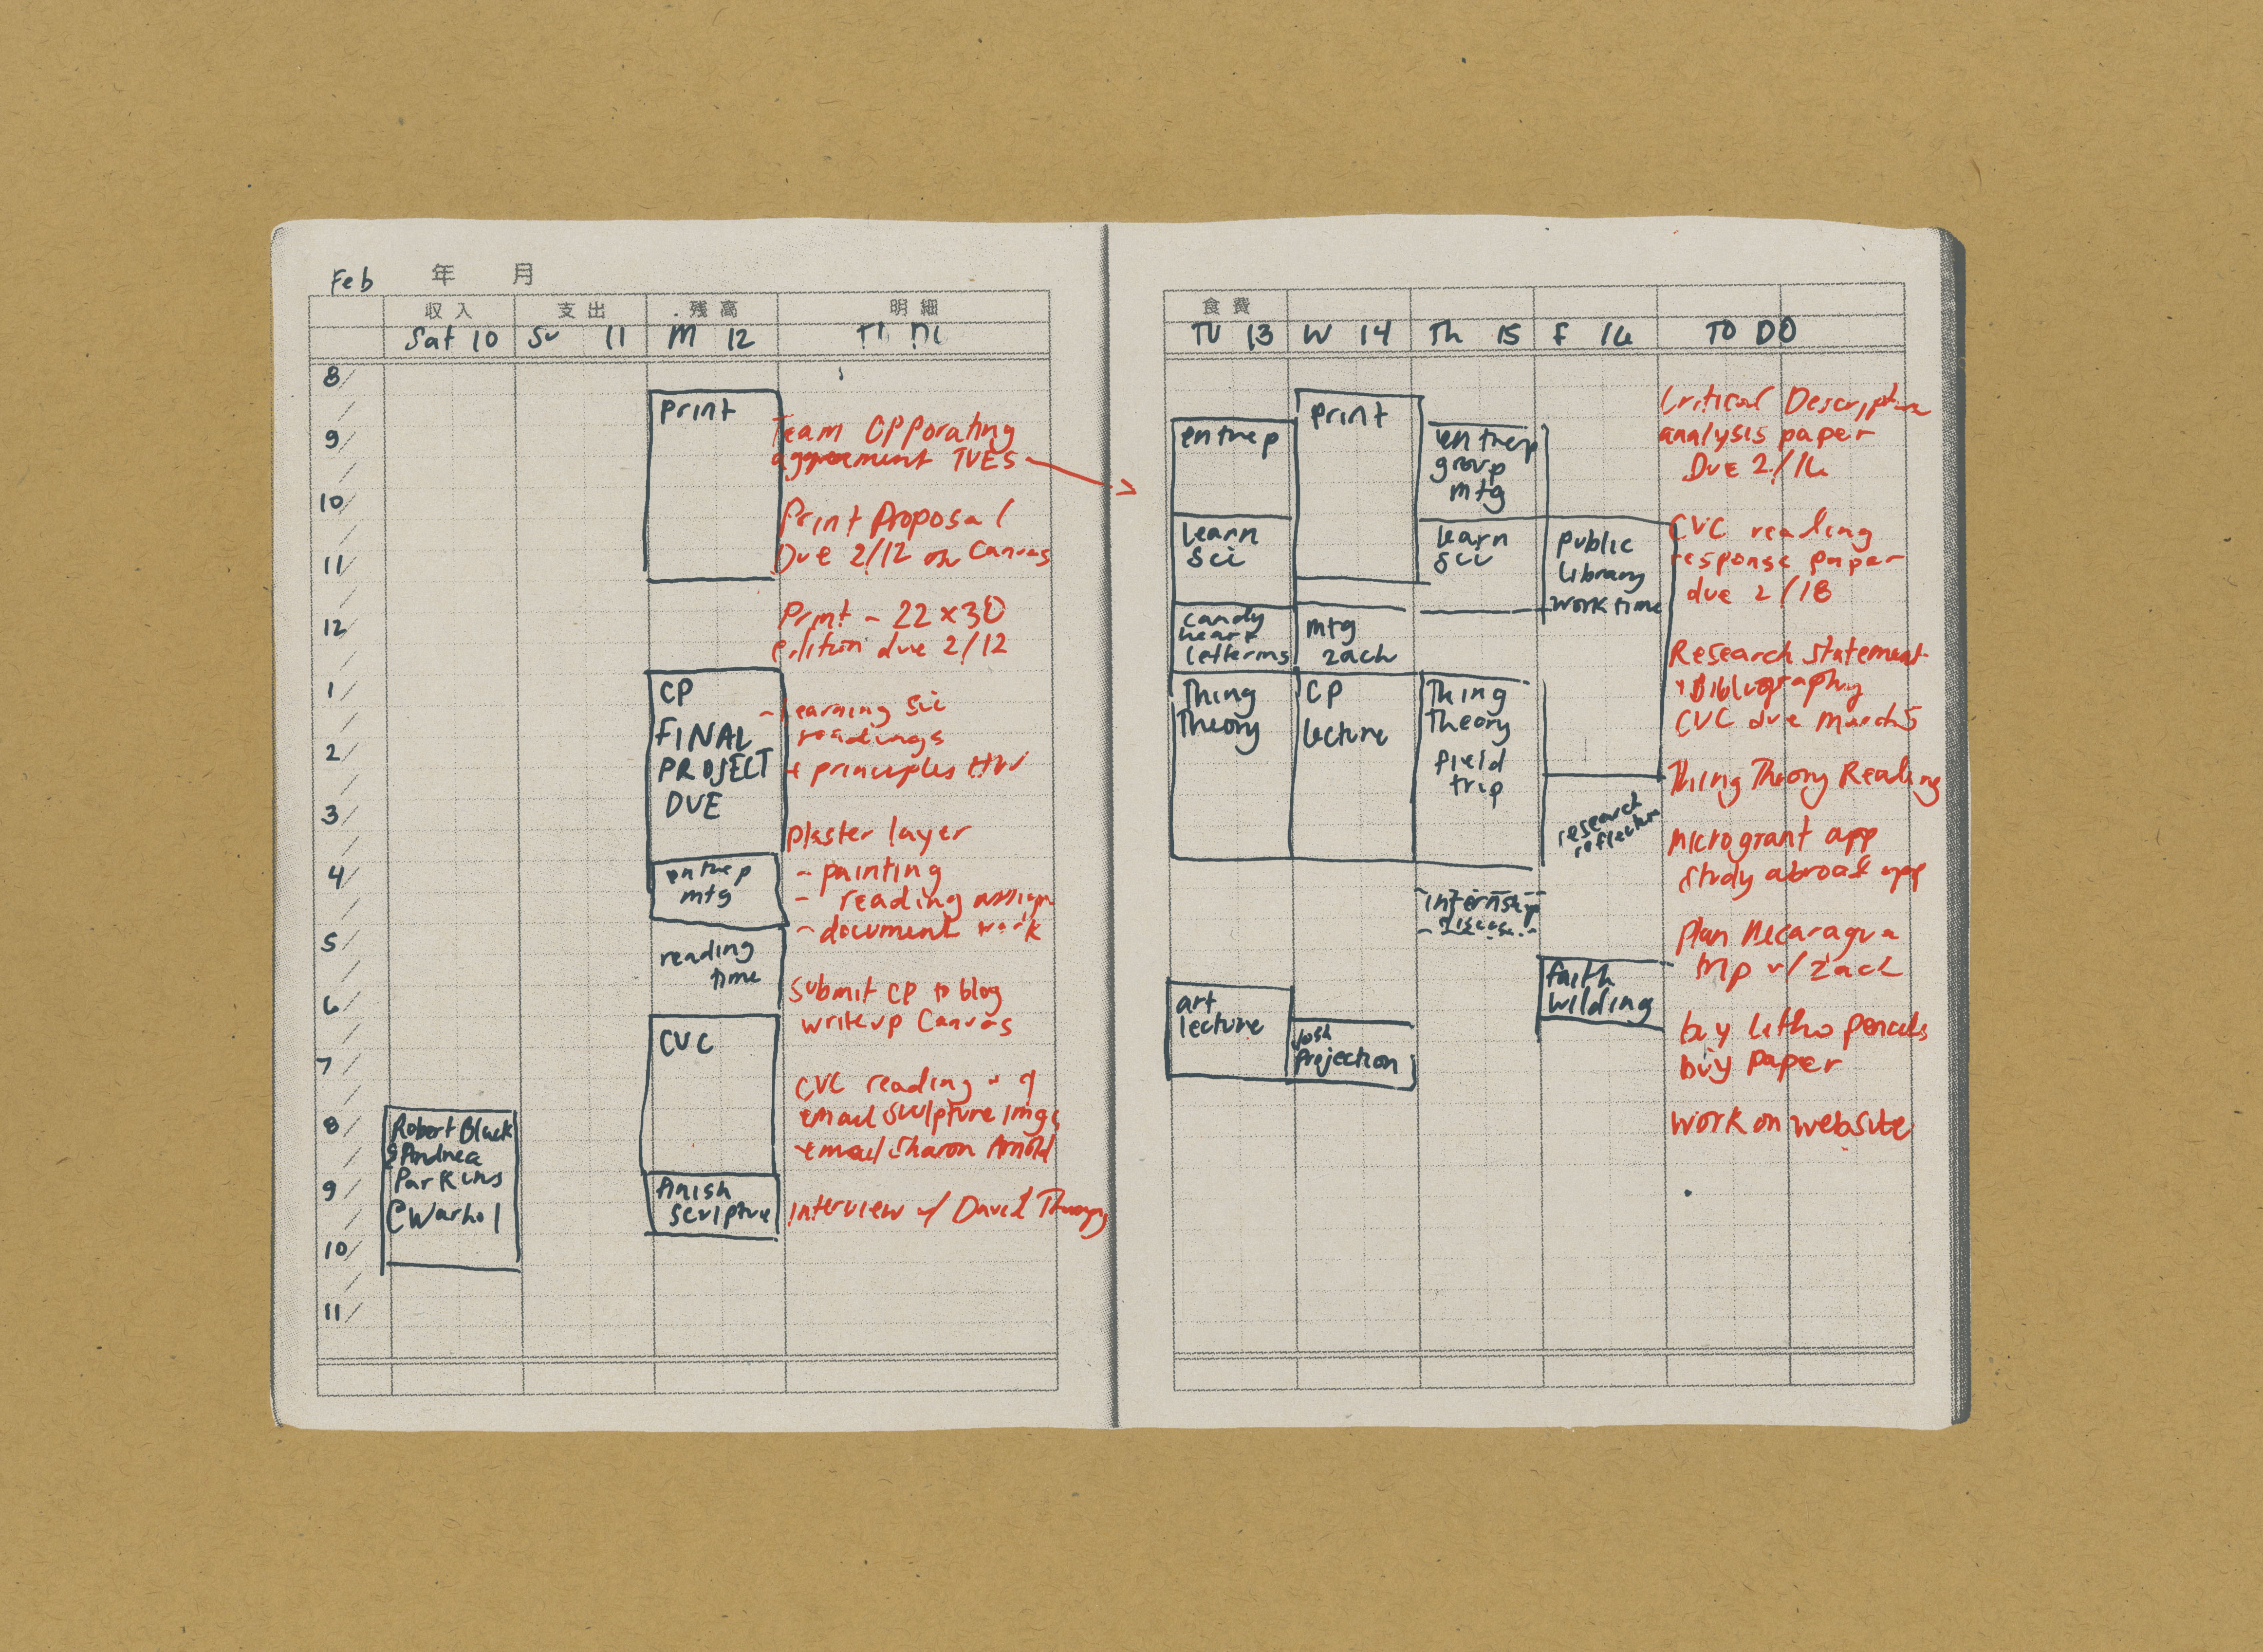 Feb 年 月
収入 支出 残高 明細
Sat 10 Su 11 M 12
8
9
10
11
12
1
2
3
4
5
6
7
8
9
10
11
Robert Black
& Andrea
Parkins
@Warhol
Print
CP
FINAL
PROJECT
DUE
entrep
mtg
reading
time
CVC
finish
sculpture
Team OPPorating
aggreement TUES
Print Proposal
Due 2/12 on Canvas
Print - 22 x 30
edition due 2/12
- Learning Sci
readings
+ principles HW
plaster layer
- painting
- reading assign
- document work
Submit CP to blog
writeup Canvas
CVC reading
email sculpture imgs
+ email Sharon Arnold
interview w/ David
食費
TU 13 W 14 Th 15 F 16 TO DO
entrep
Learn
Sci
candy
heart
letterms
Thing
Theory
art
lecture
print
mtg
zach
CP
lecture
Josh
Projection
entrep
group
mtg
learn
sci
Thing
theory
field
trip
internship
public
library
work time
research
reflection
faith
wilding
Critical Descriptive
analysis paper
Due 2/16
CVC reading
response paper
due 2/18
Research Statement
+ Bibliography
CVC due March 5
Thing Theory Reading
microgrant app
study abroad app
plan Nicaragua
trip w/ zach
buy litho pencils
buy paper
work on website